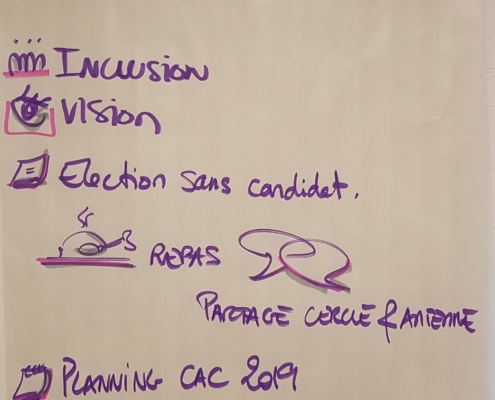 Inclusion
Vision
Election sans candidat.
REPAS
PARTAGE CERCLE & ANTENNE
PLANNING CAC 2019